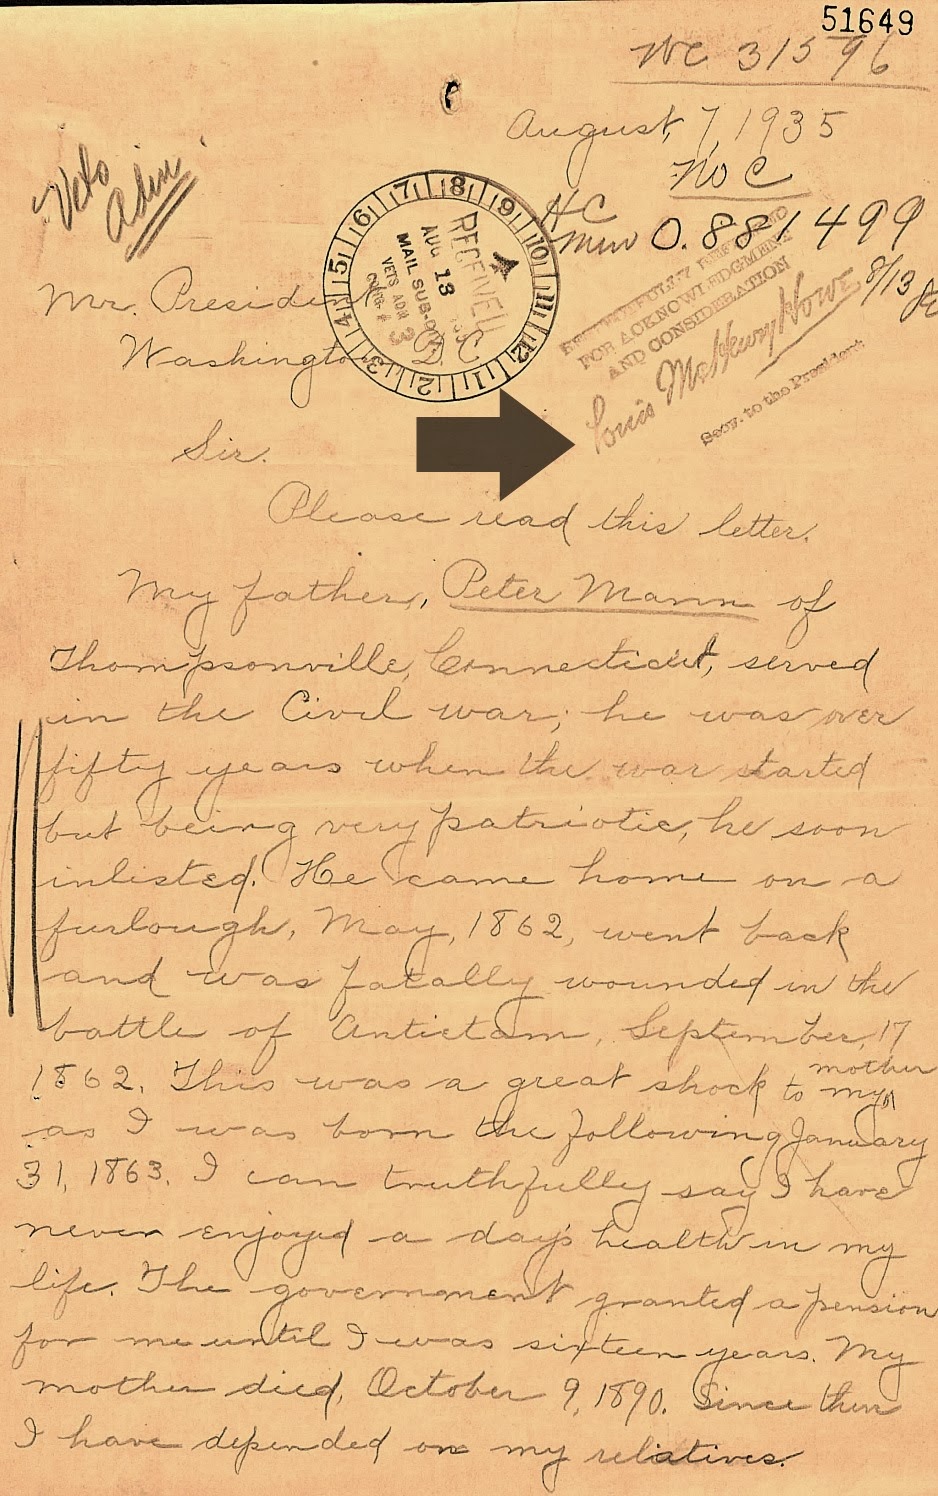 51649
WC 31596
August, 7, 1935
Vets
Adm.
WC
HC
Min O. 881499
RECEIVED
AUG 13
MAIL SUB-DIV.
VETS ADM
1 2 3 4 5 6 7 8 9 10 11 12
RESPECTFULLY REFERRED
FOR ACKNOWLEDGMENT
AND CONSIDERATION
Louis McHenry Howe
Secy. to the President
8/13
Mr. President
Washington D. C
Sir.
Please read this letter.
My father, Peter Mann of
Thompsonville, Connecticut, served
in the Civil war; he was over
fifty years when the war started
but being very patriotic, he soon
inlisted. He came home on a
furlough, May, 1862, went back
and was fatally wounded in the
battle of Antietam, September, 17
1862. This was a great shock to my mother
as I was born the following January
31, 1863. I can truthfully say I have
never enjoyed a day's health in my
life. The government granted a pension
for me until I was sixteen years. My
mother died, October 9, 1890. Since then
I have depended on my relatives.